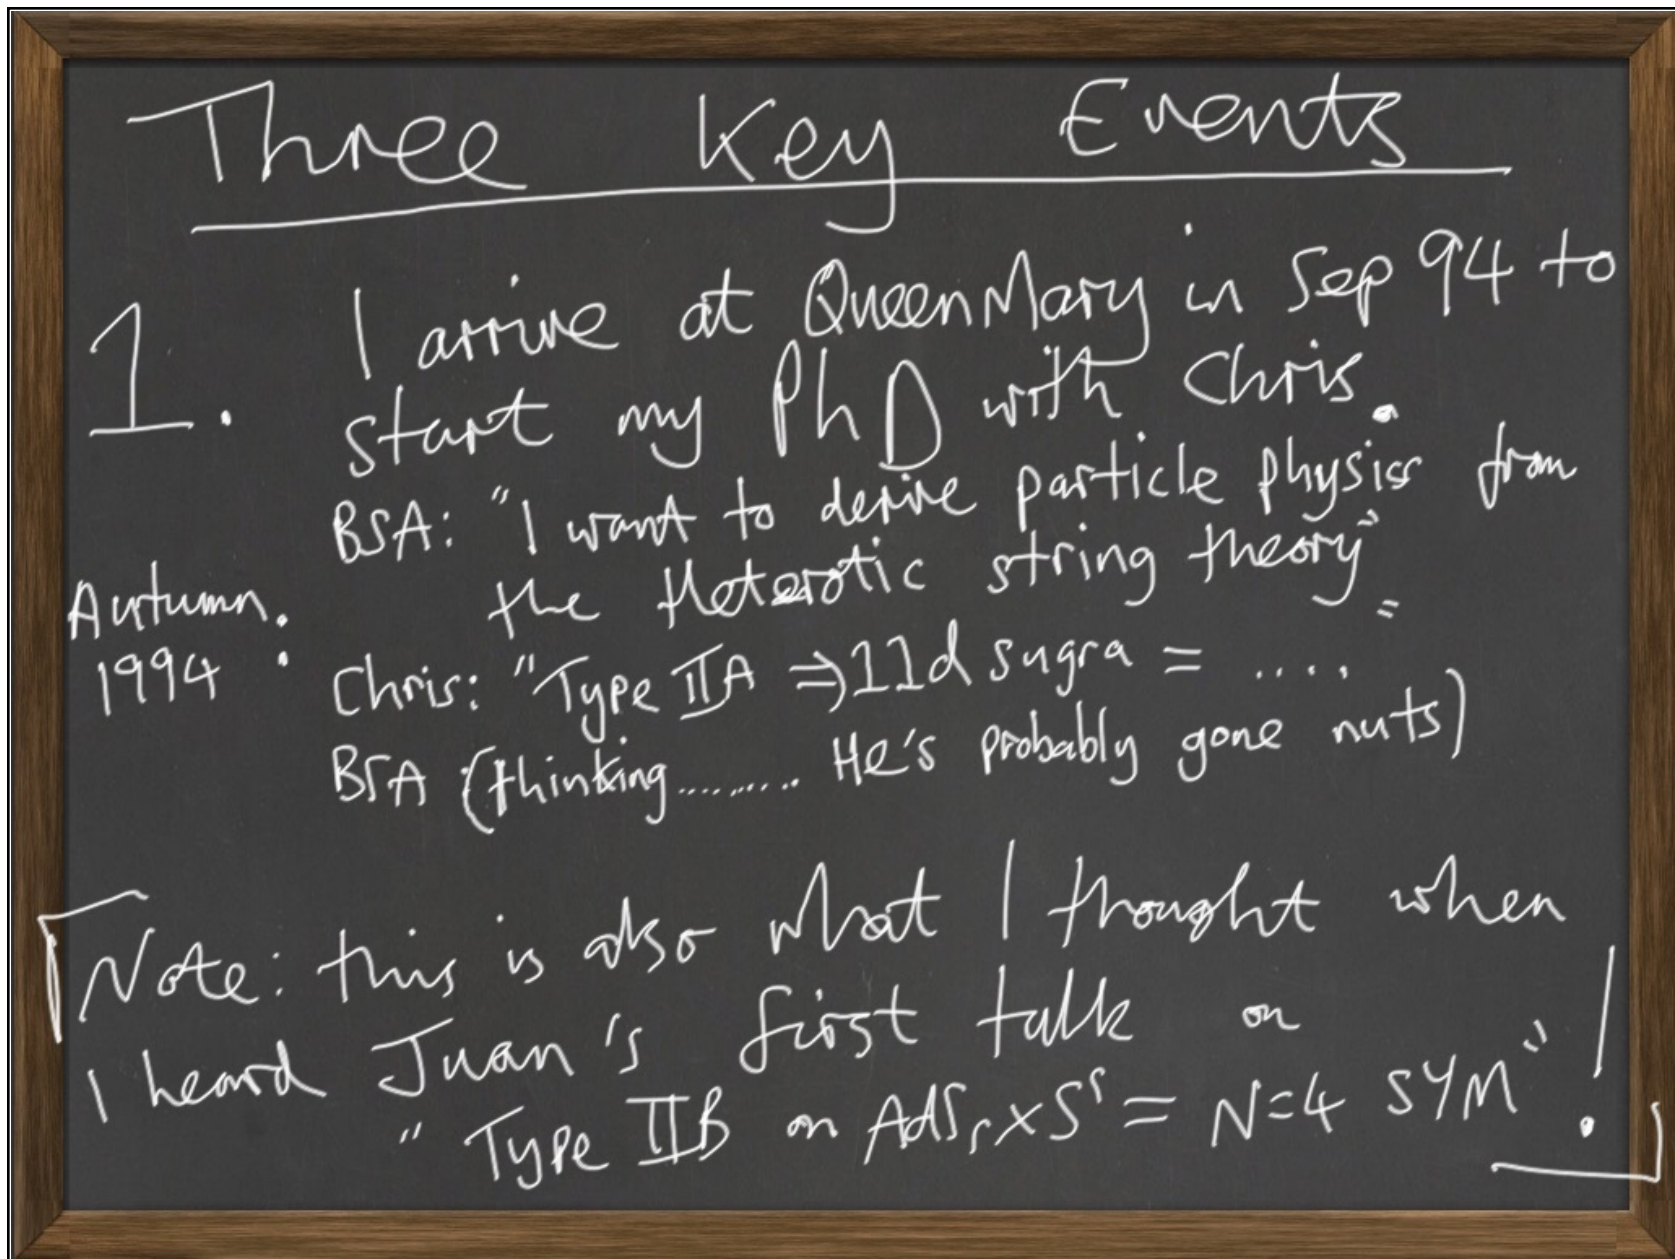 Three Key Events
1. I arrive at Queen Mary in Sep 94 to
start my PhD with Chris.
BSA: "I want to derive particle physics from
the Heterotic string theory"
Autumn.
1994
Chris: "Type IIA ⇒ 11d sugra = ....
BSA (thinking......... He's probably gone nuts)
Note: this is also what I thought when
I heard Juan's first talk on
"Type IIB on AdS₅×S⁵ = N=4 SYM"!